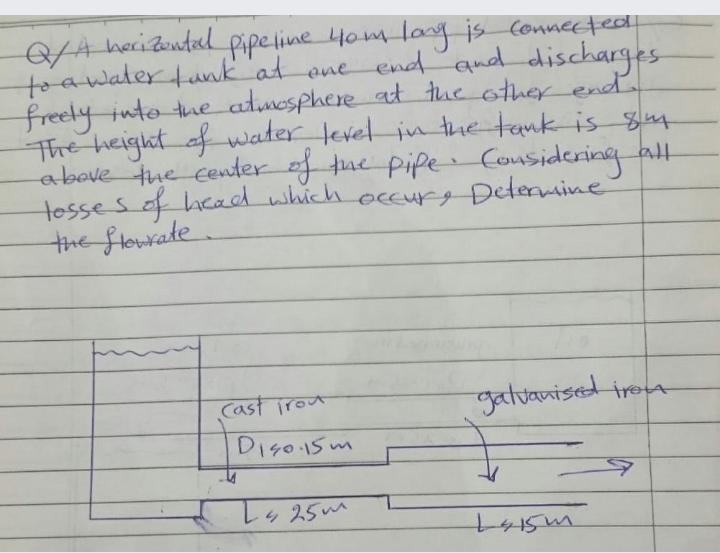 Q/ A horizontal pipeline 40m long is connected
to a water tank at one end and discharges
freely into the atmosphere at the other end.
The height of water level in the tank is 8m
above the center of the pipe. Considering all
losses of head which occur, Determine
the flowrate.
cast iron
galvanised iron
D1=0.15m
L=25m
L=15m